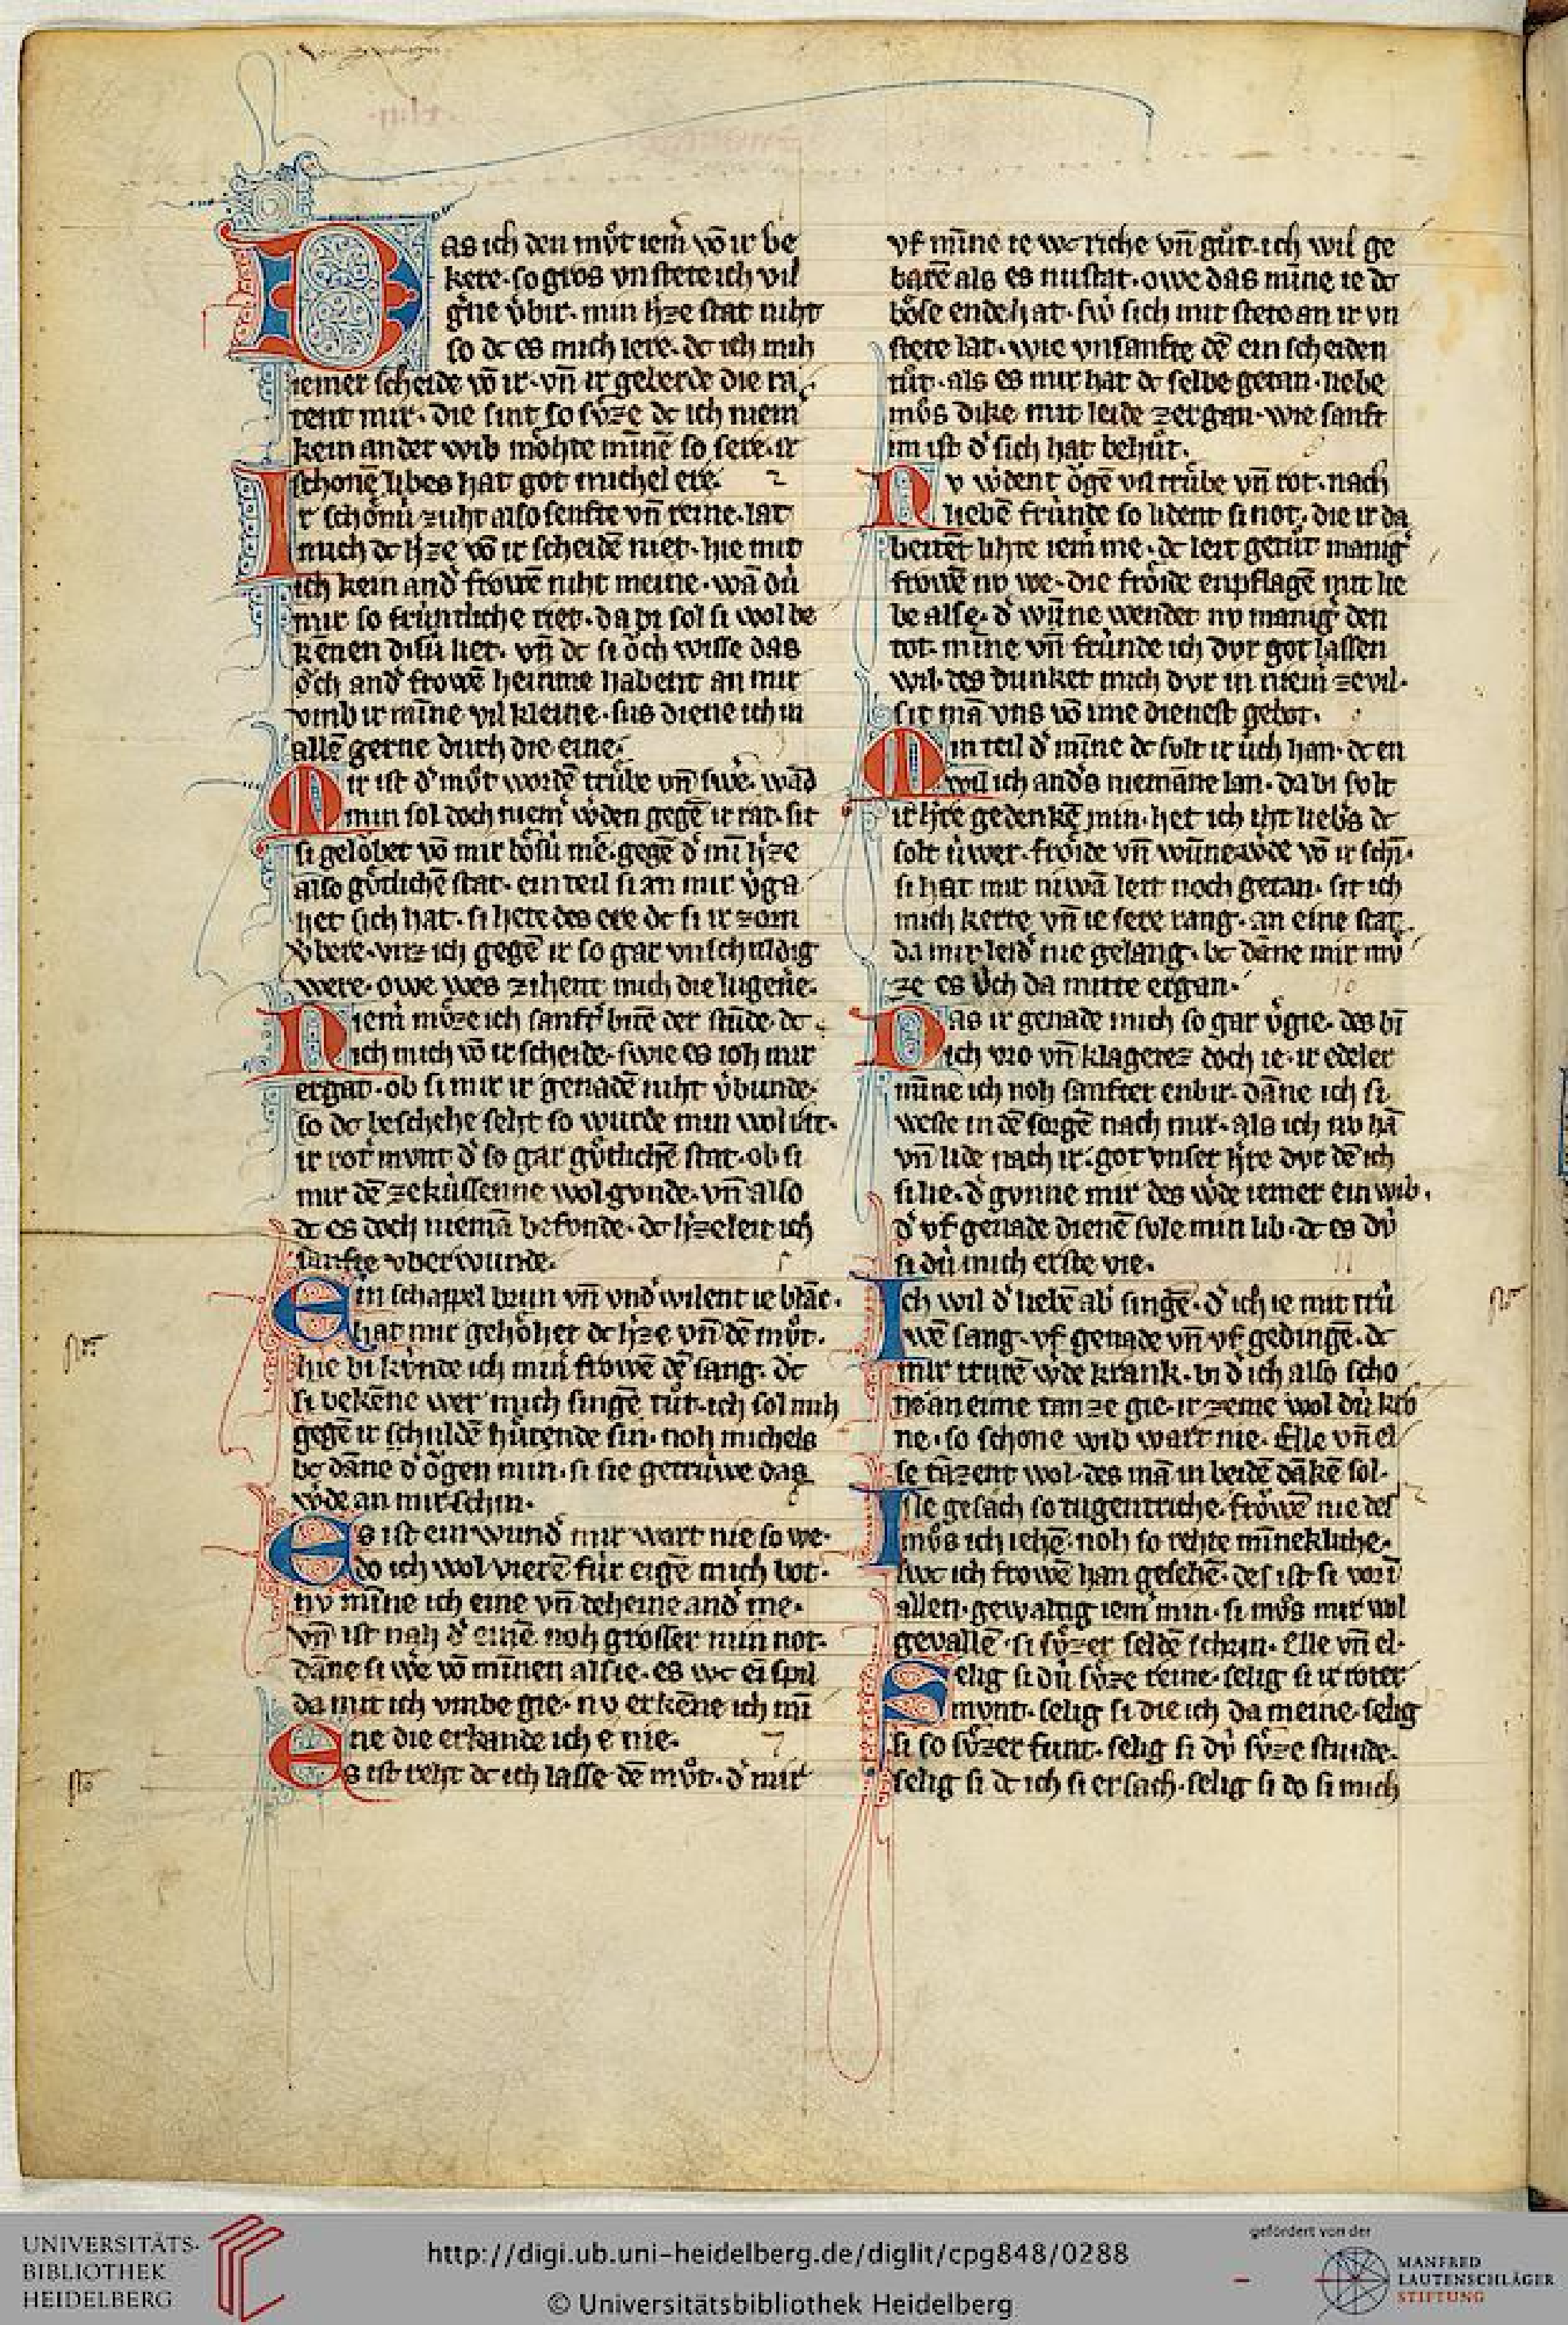 D as ich den mv̊t iem̄ vō ir be
kere. so gros vn̄ stete ich vil
g͛ne v̓bir. min h͛ze stat niht
so dc es mich iere. dc ich mih
iemer scheide vō ir. vn̄ ir geberde die ra
tent mir. die sint so sv̊ze dc ich niem͛
kein ander wib mŏhte minnē so sere. ir
schonē libes hat got michel ere.
Ir schŏnú zuht also senfte vn̄ reine. lat
mich dc h͛ze vō ir scheidē niet. hie mit
ich kein and͛ frowē niht meine. wā dú
mir so frúntliche riet. da bi sol si wol be
kēnen disú liet. vn̄ dc si ŏch wisse das
ŏch and͛ frowē heinme habent an mir
vmb ir mīne vil kleine. sus diene ich in
allē gerne durch die eine.
Mir ist d͛ mv̊t wordē trúbe vn̄ swe͛. wād͛
min sol doch niem͛ w͛den gegē ir rat. sit
si gelŏbet vō mir bŏsú me͛. gegē d͛ mī h͛ze
also gv̊tlichē stat. ein teil si an mir v͛ga
het sich hat. si hete des ere dc si ir zorn
v͛bere. wz ich gegē ir so gar vnschuldig
were. owe wes zihent mich die lugene͛.
Niem͛ mv̊ze ich sanft͛ bitē der stūde. dc
ich mich vō ir scheide. swie es ioh mir
ergat. ob si mir ir genadē niht v͛bunde.
so dc beschehe seht so wurde min wol rat.
ir rot͛ mvnt d͛ so gar gv̊tlichē stat. ob si
mir dē zekússenne wol gvnde. vn̄ also
dc es doch niemā befonde. dc h͛zeleit ich
sanfte vberwunde.
Ein schappel brun vn̄ vnd͛wilent ie blāc.
hat mir gehŏhet dc h͛ze vn̄ dē mv̊t.
hie bi kv́nde ich min͛ frowē dē sang. dc
si bekēne wer mich singē tůt. ich sol mih
gegē ir schuldē hútende sin. noh michels
bc dāne d͛ ŏgen min. si sie getrúwe das
w͛de an mir schin.
Es ist ein wund͛ mir wart nie so we.
do ich wol vierē fúr eigē mich bot.
nv mīne ich eine vn̄ deheine and͛ me.
vn̄ ist nah d͛ einē noh grosser min not.
dāne si we͛ vō mīnen alsie. es wc eī spil
da mit ich vmbe gie. nv erkēne ich mī
ne die erkande ich e nie.
Es ist reht dc ich lasse dē mv̊t. d͛ mir
vf mīne ie wc riche vn̄ gůt. ich wil ge
barē als es nu stat. owe das mīne ie dc
bŏse ende hat. sw͛ sich mit stete an ir vn
stete lat. wie vnsanfte dē ein scheiden
tůt. als es mir hat dc selbe getan. liebe
mv̊s dike mit leide zergan. wie sanft
im ist d͛ sich hat behůt.
Nv w͛dent ŏgē vil trúbe vn̄ rot. nach
liebē frúnde so lident si not. die ir da
beitēt lihte iem͛ me. dc leit getůt manig͛
frowē nv we. die frŏide enpflagē mit lie
be alse. d͛ wn̄ne wendet nv manig͛ den
tot. mīne vn̄ frúnde ich dvr got lassen
wil. des dunket mich dvr in niem͛ zevil.
sit mā vns vō ime dienest gebot.
Min teil d͛ mīne dc sult ir úch han. dc en
wil ich and͛s niemāne lan. da bi sölt
ir h͛re gedenkē min. het ich iht lieb͛s dc
solt úwer. frŏide vn̄ wn̄ne w͛de vō ir schī.
si hat mir niwā leit noch getan. sit ich
mich kerte vn̄ ie sere rang. an eine stat
da mir leid͛ nie gelang. bc dāne mir mv̊
ze es v̊ch da mitte ergan.
Das ir genade mich so gar v͛gie. des bī
ich vro vn̄ klagetez doch ie. ir edeler
mīne ich noh sanfter enbir. dāne ich si
weste in dē sorgē nach mir. als ich nv hā
vn̄ lide nach ir. got vnser h͛re dvr dē ich
si lie. d͛ gvnne mir des w͛de iemer ein wib.
d͛ vf genade dienē sule min lib. dc es dv́
si dú mich erste vie.
Ich wil d͛ liebē ab͛ singē. d͛ ich ie mit trú
wē sang. vf genade vn̄ vf gedingē. dc
mir trurē w͛de krank. bi d͛ ich also scho
ne an eime tanze gie. ir zeme wol dú kro
ne. so schone wib wart nie. Elle vn̄ el
se tāzent wol. des mā in beidē dākē sol.
Ine gesach so tugentriche. frŏwē nie des
mv̊s ich iehē. noh so rehte mīnekliche.
swc ich frowē han gesehē. des ist si vor ī
allen. gewaltig iem͛ min. si mv̊s mir wol
gevallē. si sv̊zer seldē schrin. Elle vn̄ el.
Selig si dú sv̊ze reine. selig si ir roter
mvnt. selig si die ich da meine. selig
si so sv̊zer funt. selig si dv́ sv̊ze stunde.
selig si dc ich si ersach. selig si do si mich
UNIVERSITÄTS-
BIBLIOTHEK
HEIDELBERG
http://digi.ub.uni-heidelberg.de/diglit/cpg848/0288
© Universitätsbibliothek Heidelberg
gefördert von der
MANFRED
LAUTENSCHLÄGER
STIFTUNG